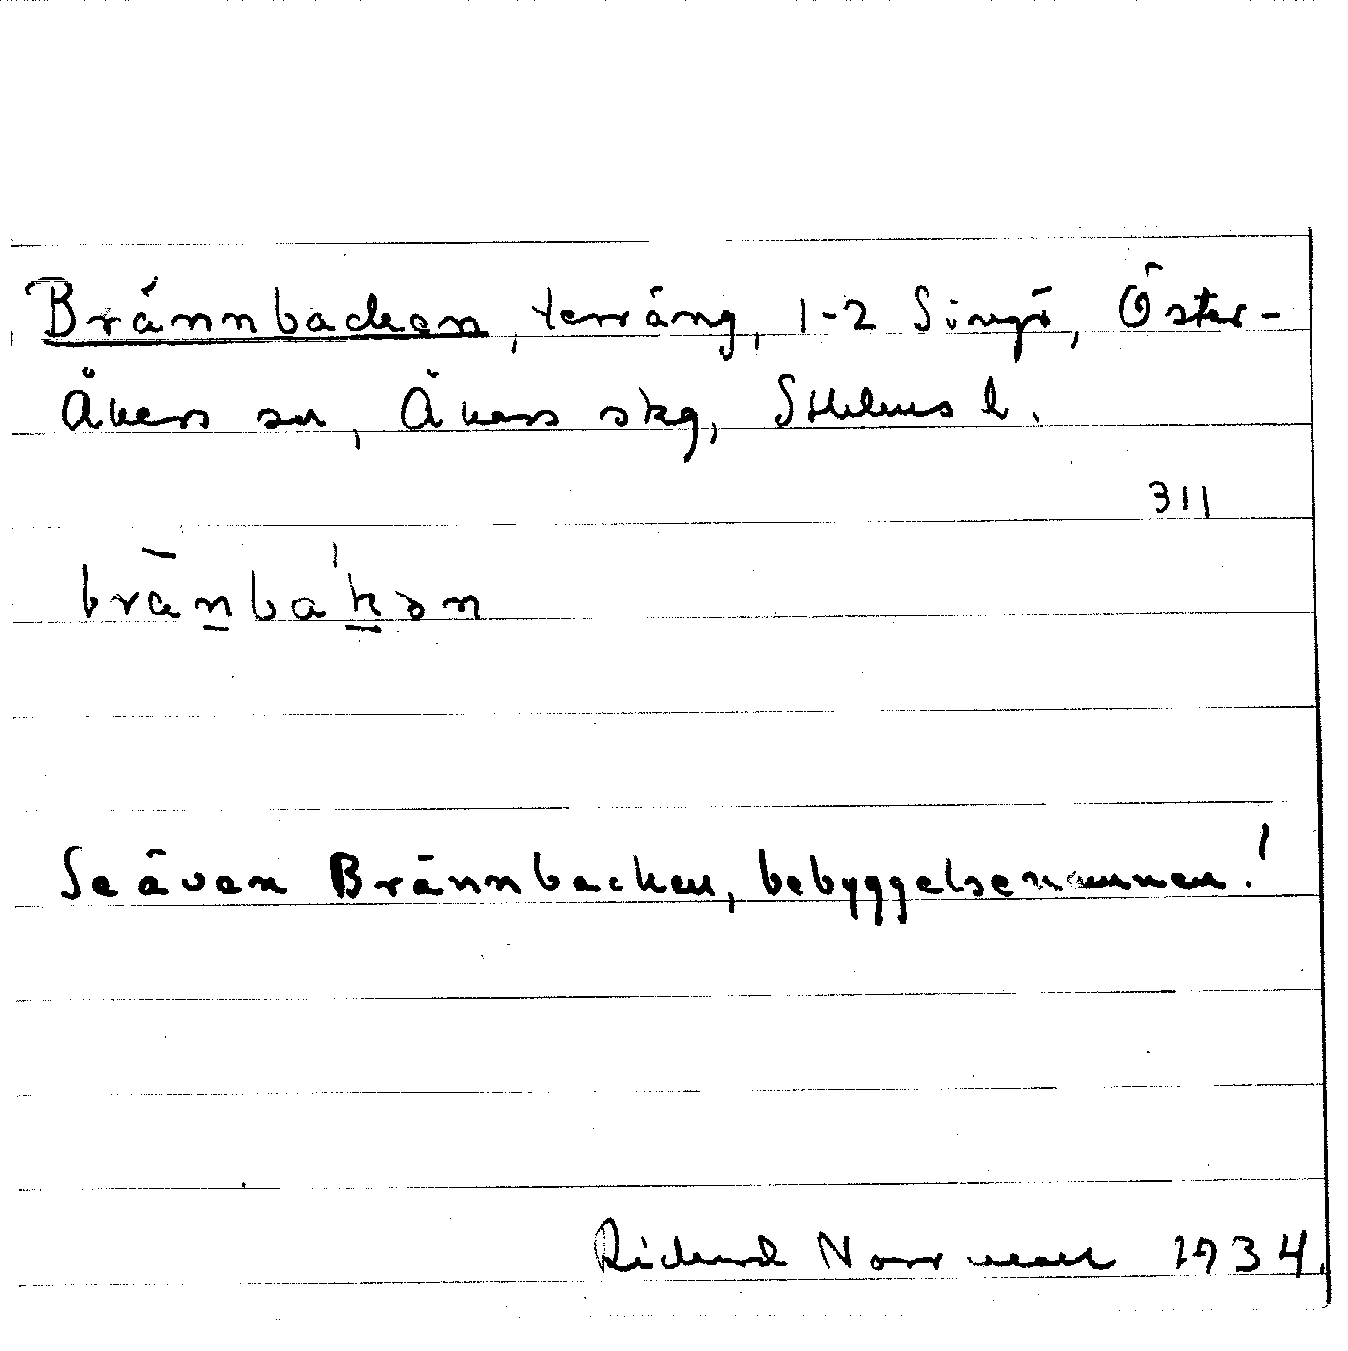 Brännbacken, terräng, 1-2 Singö, Öster-
Åkers sn, Åkers skg, Sthlms l.
311
bränba'kən
Se även Brännbacken, bebyggelsenamnen!
Richard Norrman 1934.